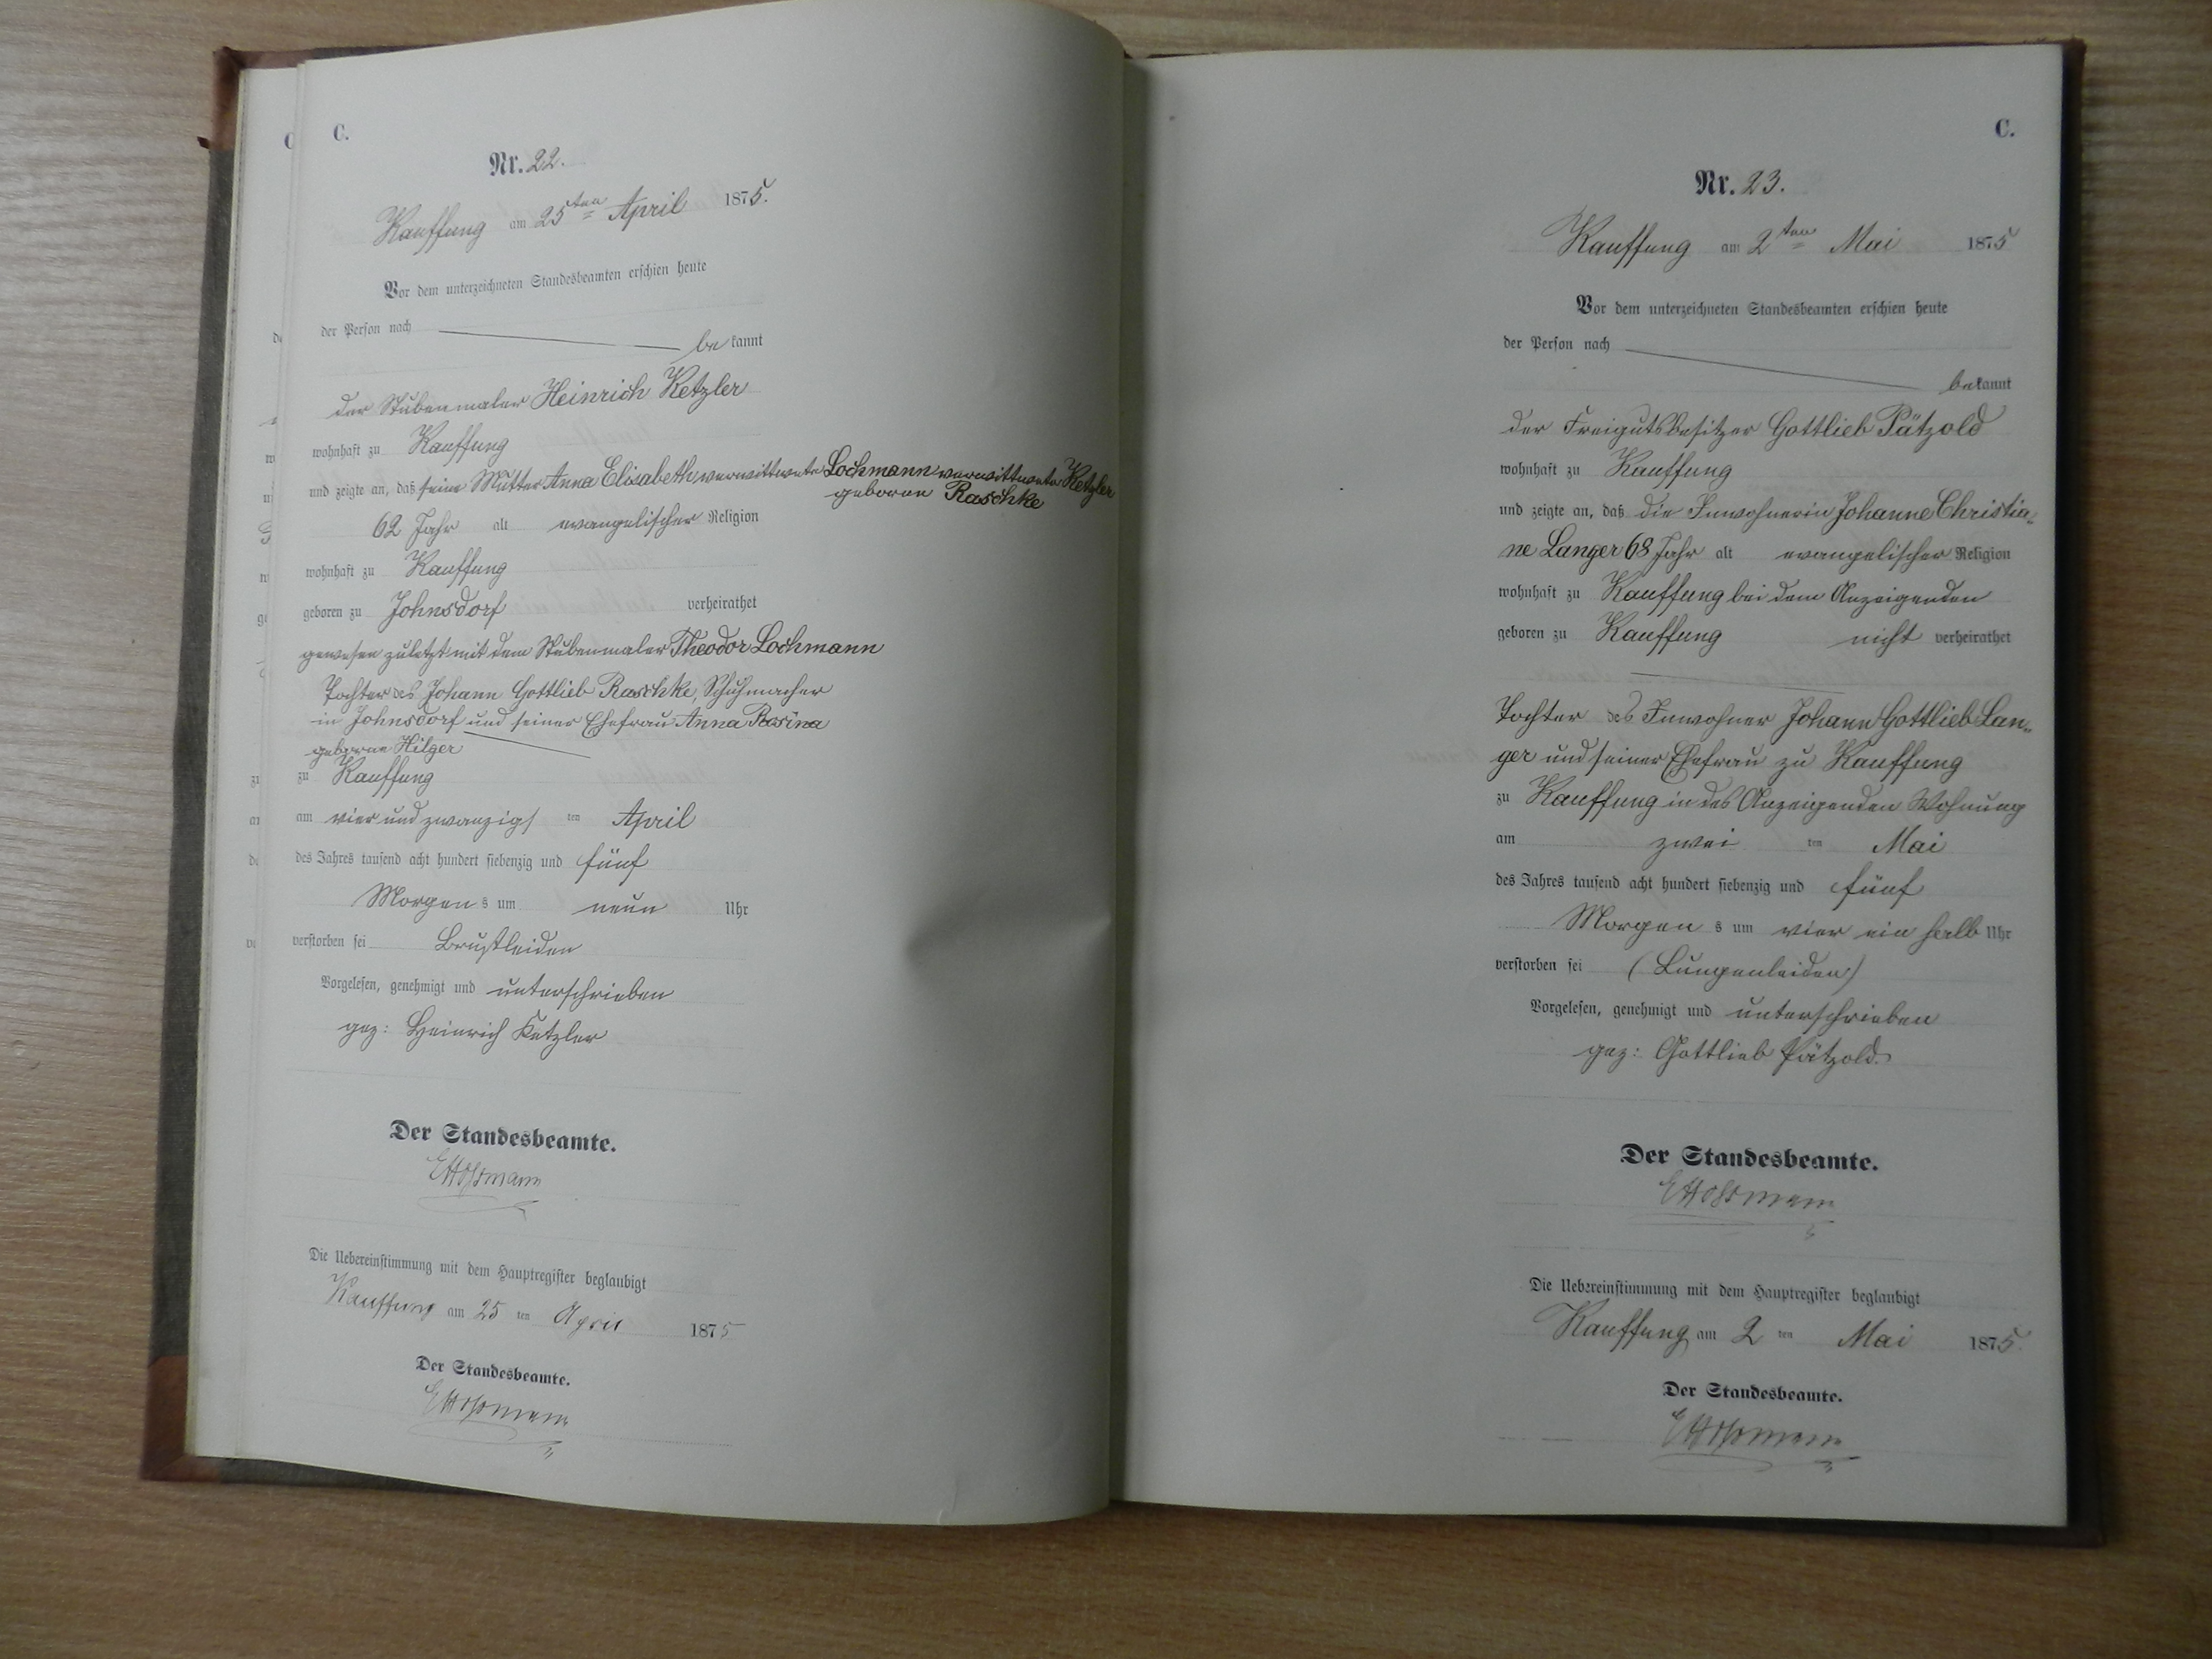 C.
Nr. 22.
Kauffung am 25ten April 1875.
Vor dem unterzeichneten Standesbeamten erschien heute
der Person nach
be kannt
der Stubenmaler Heinrich Ketzler
wohnhaft zu Kauffung
und zeigte an, daß seine Mutter Anna Elisabeth verwittwete Lochmann verwittwete Ketzler
geborne Raschke
62 Jahr alt evangelischer Religion
wohnhaft zu Kauffung
geboren zu Johnsdorf verheirathet
gewesen zuletzt mit dem Stubenmaler Theodor Lochmann
Tochter des Johann Gottlieb Raschke, Schuhmacher
in Johnsdorf und seiner Ehefrau Anna Rosina
geborne Hilger
zu Kauffung
am vier und zwanzigs ten April
des Jahres tausend acht hundert siebenzig und fünf
Morgen s um neun Uhr
verstorben sei Brustleiden
Vorgelesen, genehmigt und unterschrieben
gez: Heinrich Ketzler
Der Standesbeamte.
Die Uebereinstimmung mit dem Hauptregister beglaubigt
Kauffung am 25 ten April 1875
Der Standesbeamte.
C.
Nr. 23.
Kauffung am 2ten Mai 1875
Vor dem unterzeichneten Standesbeamten erschien heute
der Person nach
bekannt
der Freigutsbesitzer Gottlieb Pätzold
wohnhaft zu Kauffung
und zeigte an, daß die Inwohnerin Johanne Christia-
ne Langer 68 Jahr alt evangelischer Religion
wohnhaft zu Kauffung bei dem Anzeigenden
geboren zu Kauffung nicht verheirathet
Tochter des Inwohner Johann Gottlieb Lan-
ger und seiner Ehefrau zu Kauffung
zu Kauffung in des Anzeigenden Wohnung
am zwei ten Mai
des Jahres tausend acht hundert siebenzig und fünf
Morgen s um vier ein halb Uhr
verstorben sei (Lungenleiden)
Vorgelesen, genehmigt und unterschrieben
gez: Gottlieb Pätzold
Der Standesbeamte.
Die Uebereinstimmung mit dem Hauptregister beglaubigt
Kauffung am 2 ten Mai 1875.
Der Standesbeamte.